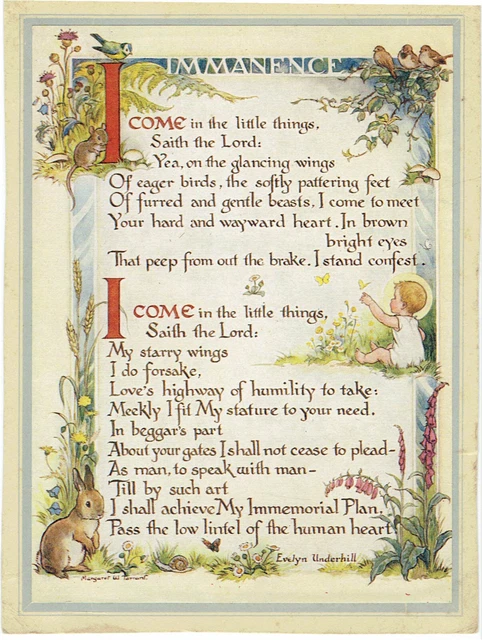 IMMANENCE
I COME in the little things,
Saith the Lord:
Yea, on the glancing wings
Of eager birds, the softly pattering feet
Of furred and gentle beasts, I come to meet
Your hard and wayward heart. In brown
bright eyes
That peep from out the brake, I stand confest.
I COME in the little things,
Saith the Lord:
My starry wings
I do forsake,
Love's highway of humility to take:
Meekly I fit My stature to your need.
In beggar's part
About your gates I shall not cease to plead-
As man, to speak with man-
Till by such art
I shall achieve My Immemorial Plan,
Pass the low lintel of the human heart
Evelyn Underhill
Margaret W Tarrant.